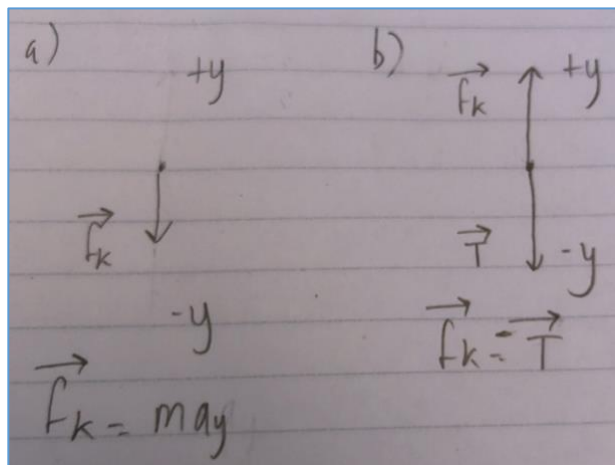 a)
+y
→fₖ
-y
→fₖ = may
b)
→fₖ
+y
→T
-y
→fₖ = -→T